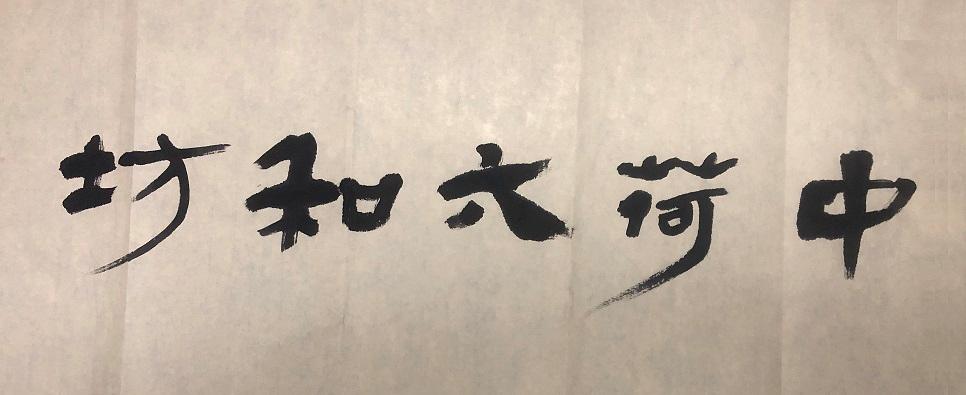 中荷六和坊